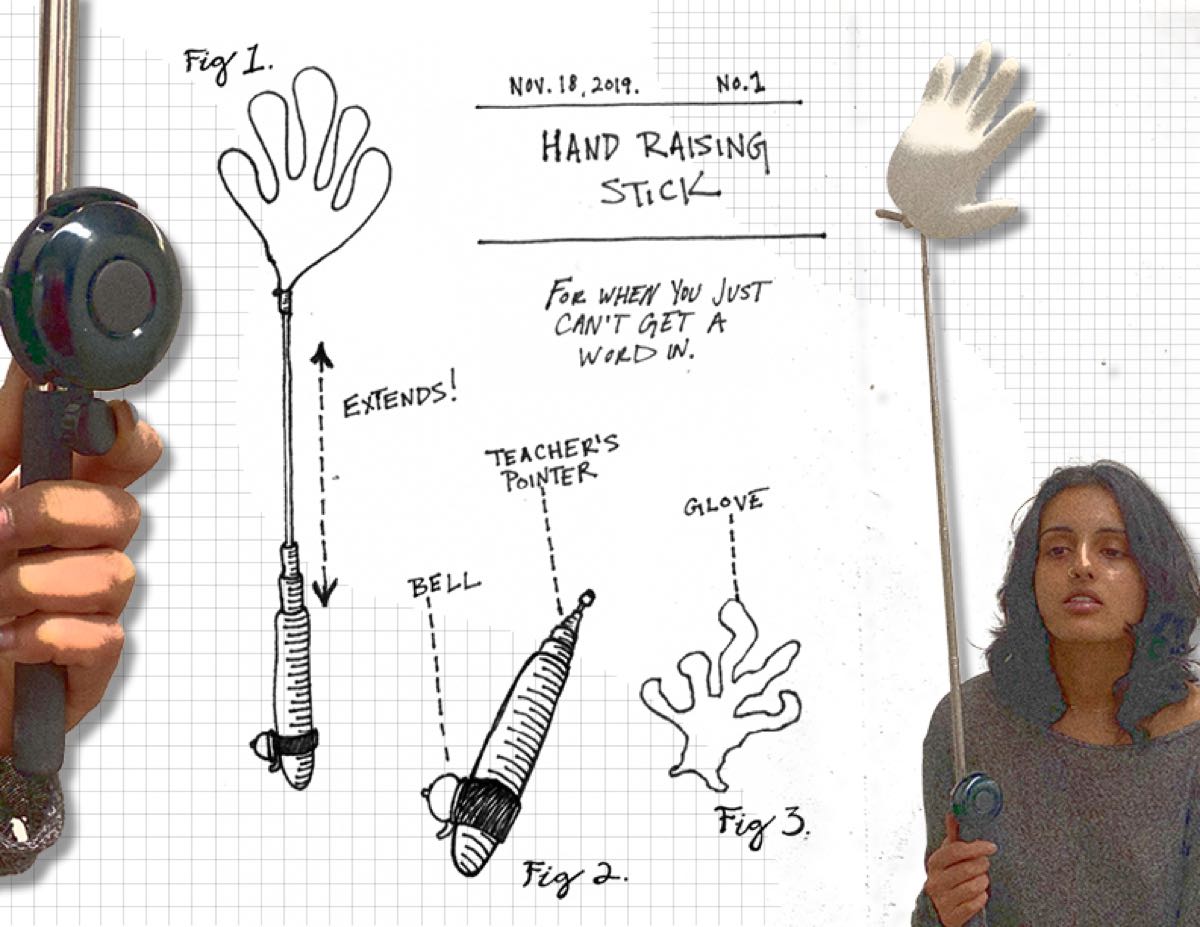 Fig 1.
NOV. 18, 2019. No. 1
HAND RAISING
STICK
FOR WHEN YOU JUST
CAN'T GET A
WORD IN.
EXTENDS!
TEACHER'S
POINTER
GLOVE
BELL
Fig 3.
Fig 2.